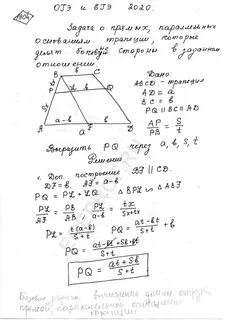 ОГЭ и ЕГЭ 2020.
Задача о прямых, параллельных
основаниям трапеции, которые
делят боковые стороны в заданном
отношении.
B b C
P Q
A a-b F b D
a
Дано:
ABCD - трапеция
AD = a
BC = b
PQ || BC || AD
AP/PB = S/t
Выразить PQ через a, b, S, t
Решение
1. Доп. построение BF || CD.
DF = b. AF = a-b
PQ = PL + LQ
△ BPL ∾ △ ABF
PL/AF = PB/AB
PL/(a-b) =
PL = t(a-b)/(S+t)
PQ = (at-bt)/(S+t) + b
PQ = (at-bt+Sb+bt)/(S+t)
PQ = (at+Sb)/(S+t)
Базовая задача
прямой, параллельной основаниям
трапеции